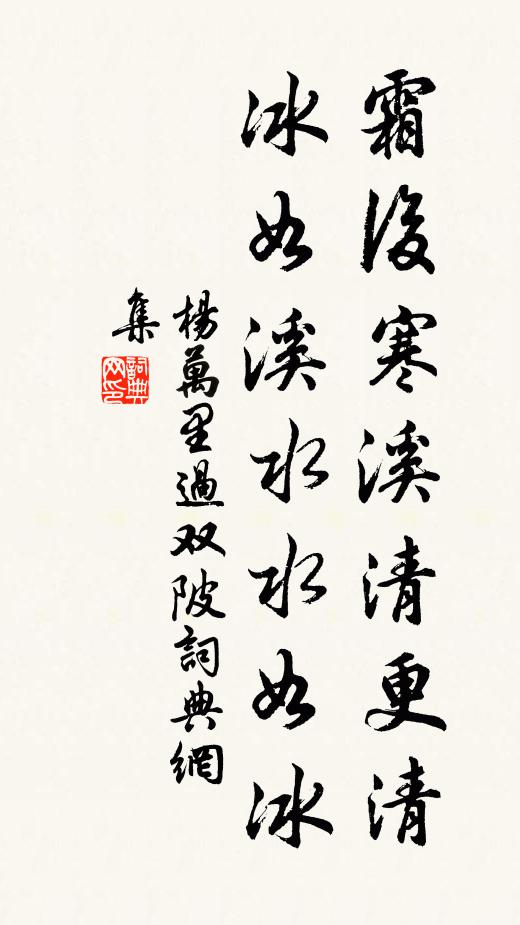 霜後寒溪清更清
冰如溪水水如冰
楊萬里過双陂詞典網
集
詞典网印